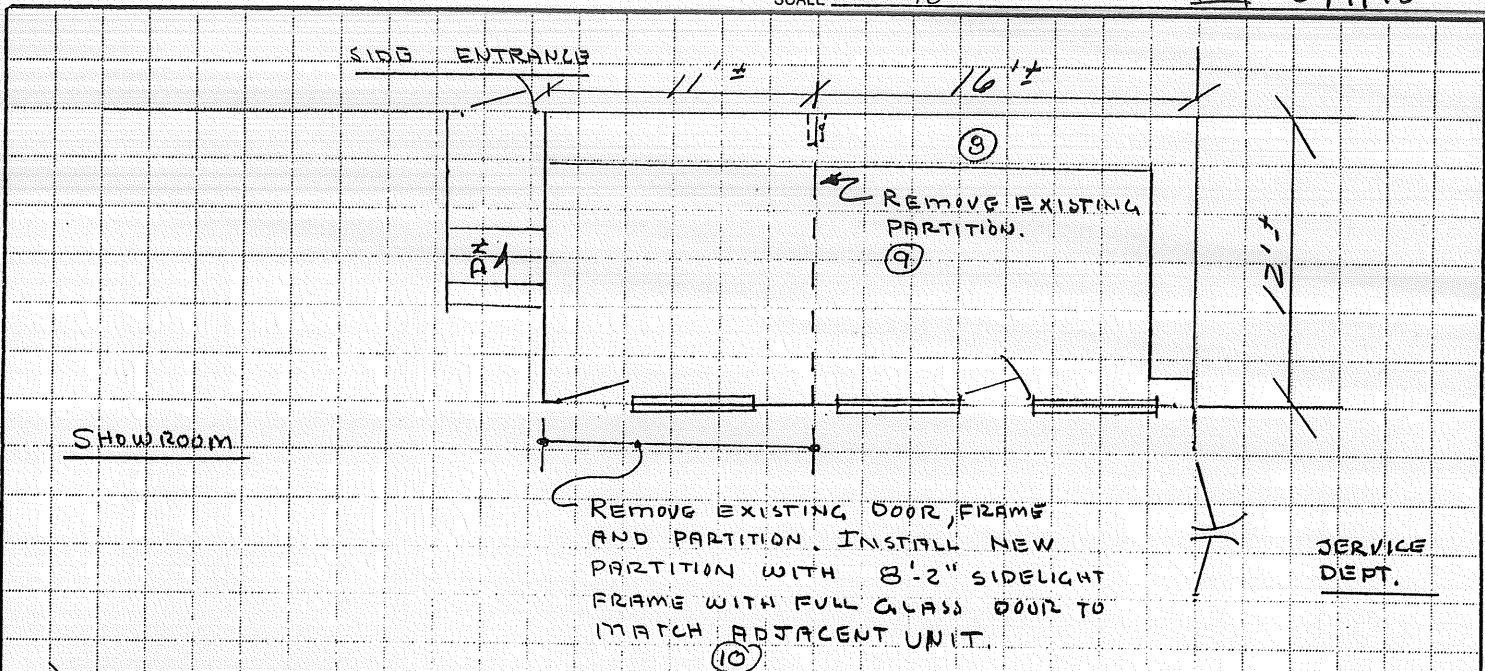 SCALE
SIDE ENTRANCE
11'±
16'±
8
REMOVE EXISTING
PARTITION.
9
12'±
SHOWROOM
REMOVE EXISTING DOOR, FRAME
AND PARTITION. INSTALL NEW
PARTITION WITH 8'-2" SIDELIGHT
FRAME WITH FULL GLASS DOOR TO
MATCH ADJACENT UNIT.
10
SERVICE
DEPT.